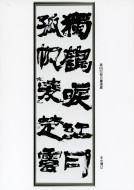 獨鶴唳江月
孤帆凌楚雲